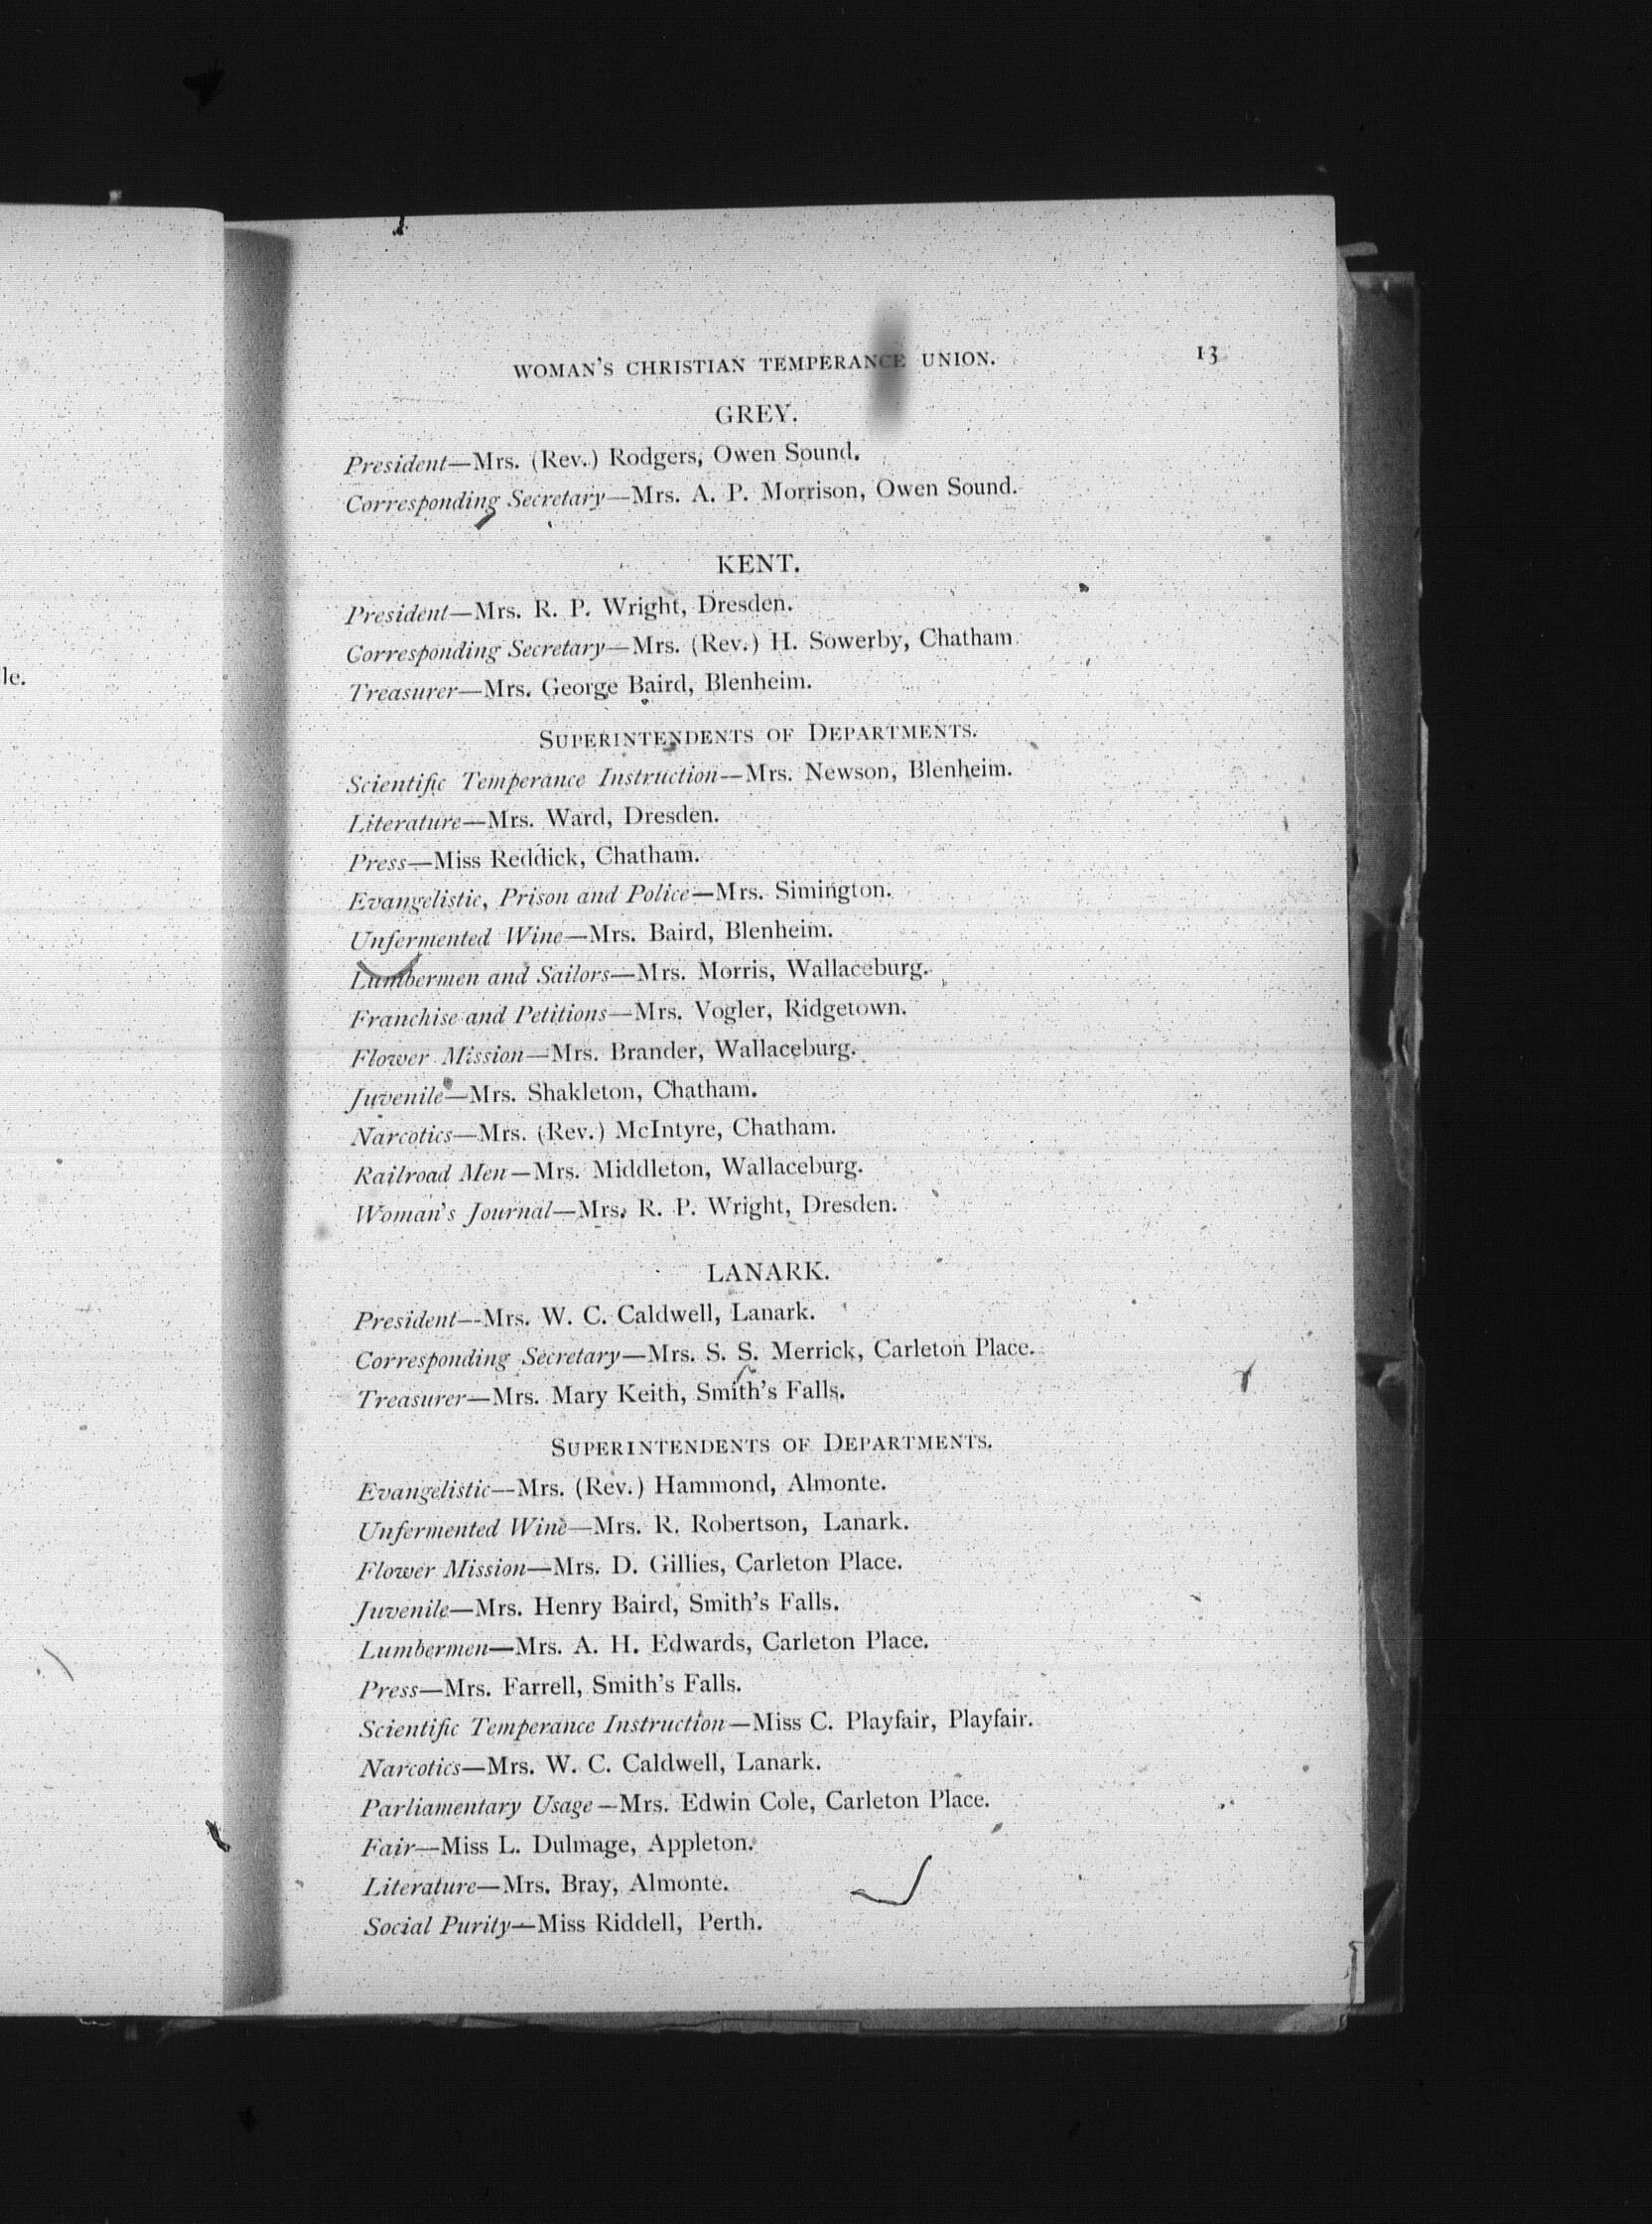 le.
WOMAN'S CHRISTIAN TEMPERANCE UNION. 13
GREY.
President—Mrs. (Rev.) Rodgers, Owen Sound.
Corresponding Secretary—Mrs. A. P. Morrison, Owen Sound.
KENT.
President—Mrs. R. P. Wright, Dresden.
Corresponding Secretary—Mrs. (Rev.) H. Sowerby, Chatham.
Treasurer—Mrs. George Baird, Blenheim.
SUPERINTENDENTS OF DEPARTMENTS.
Scientific Temperance Instruction—Mrs. Newson, Blenheim.
Literature—Mrs. Ward, Dresden.
Press—Miss Reddick, Chatham.
Evangelistic, Prison and Police—Mrs. Simington.
Unfermented Wine—Mrs. Baird, Blenheim.
Lumbermen and Sailors—Mrs. Morris, Wallaceburg.
Franchise and Petitions—Mrs. Vogler, Ridgetown.
Flower Mission—Mrs. Brander, Wallaceburg.
Juvenile—Mrs. Shakleton, Chatham.
Narcotics—Mrs. (Rev.) McIntyre, Chatham.
Railroad Men—Mrs. Middleton, Wallaceburg.
Woman's Journal—Mrs. R. P. Wright, Dresden.
LANARK.
President—Mrs. W. C. Caldwell, Lanark.
Corresponding Secretary—Mrs. S. S. Merrick, Carleton Place.
Treasurer—Mrs. Mary Keith, Smith's Falls.
SUPERINTENDENTS OF DEPARTMENTS.
Evangelistic—Mrs. (Rev.) Hammond, Almonte.
Unfermented Wine—Mrs. R. Robertson, Lanark.
Flower Mission—Mrs. D. Gillies, Carleton Place.
Juvenile—Mrs. Henry Baird, Smith's Falls.
Lumbermen—Mrs. A. H. Edwards, Carleton Place.
Press—Mrs. Farrell, Smith's Falls.
Scientific Temperance Instruction—Miss C. Playfair, Playfair.
Narcotics—Mrs. W. C. Caldwell, Lanark.
Parliamentary Usage—Mrs. Edwin Cole, Carleton Place.
Fair—Miss L. Dulmage, Appleton.
Literature—Mrs. Bray, Almonte.
Social Purity—Miss Riddell, Perth.